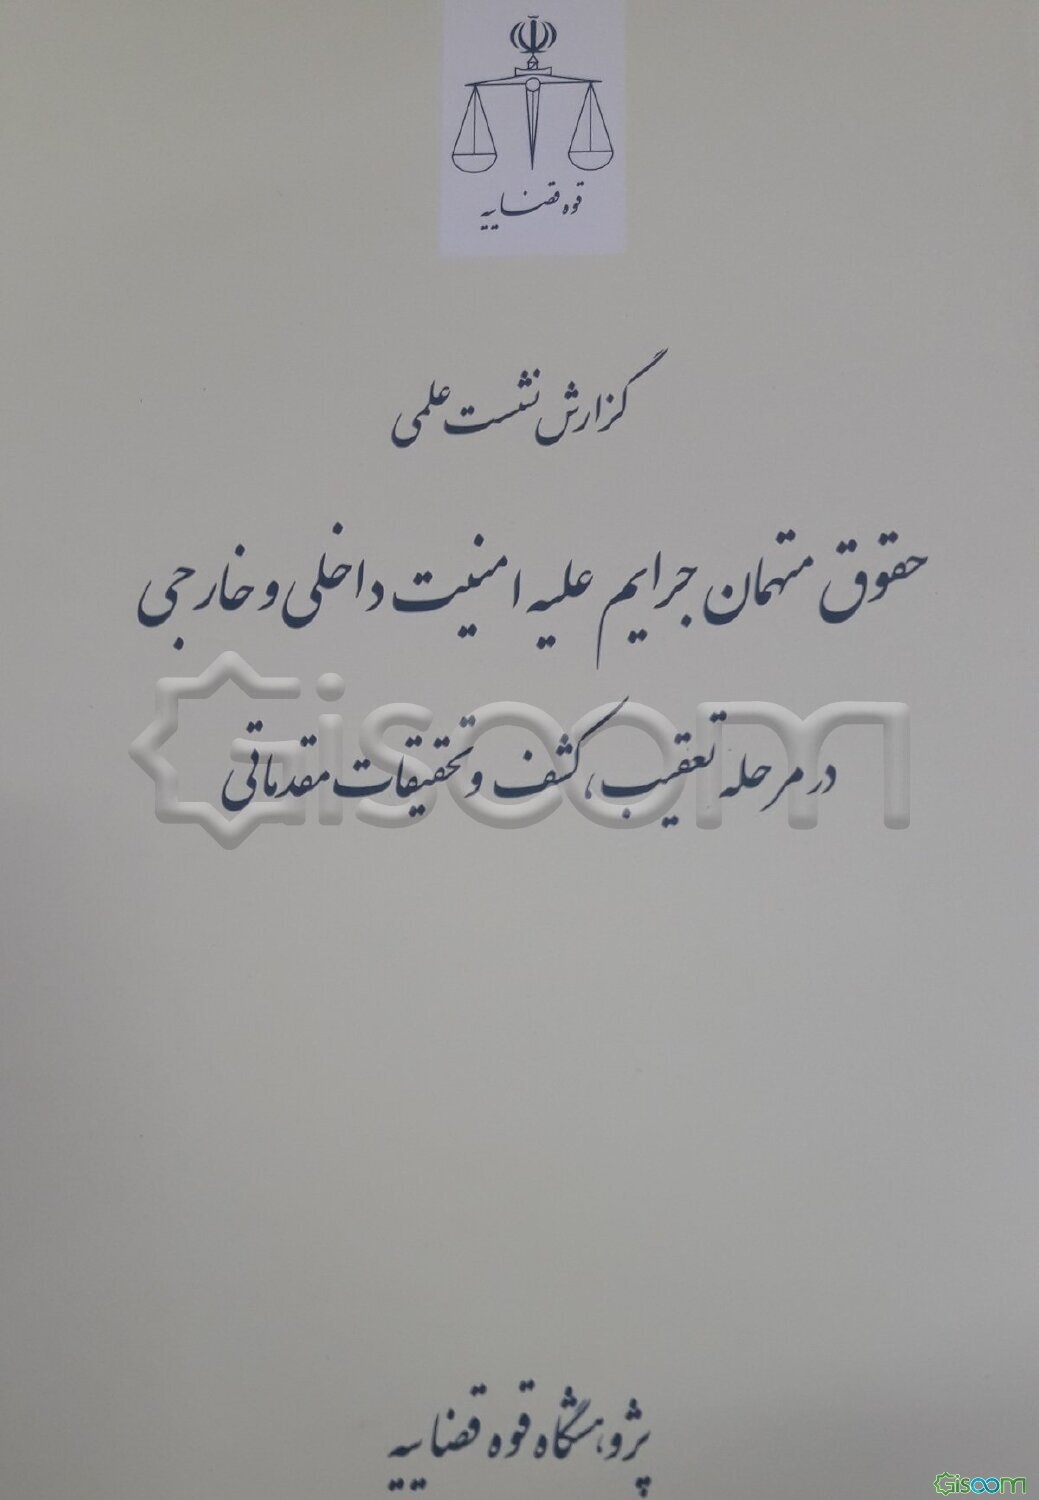 قوه قضاییه
گزارش نشست علمی
حقوق متهمان جرایم علیه امنیت داخلی و خارجی
Gisoom
در مرحله تعقیب، کشف و تحقیقات مقدماتی
پژوهشگاه قوه قضاییه
Gisoom